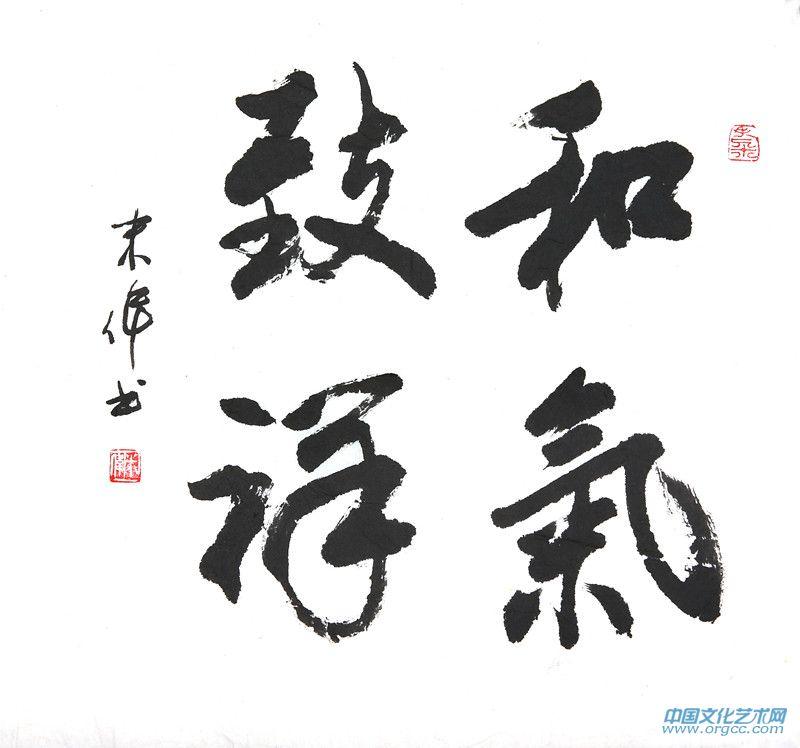 和氣
致祥
书
中国文化艺术网
www.orgcc.com